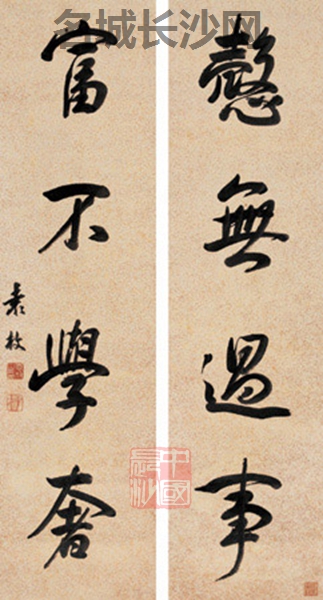 名城长沙网
愨無過事
富不學奢
袁枚
中國
長沙